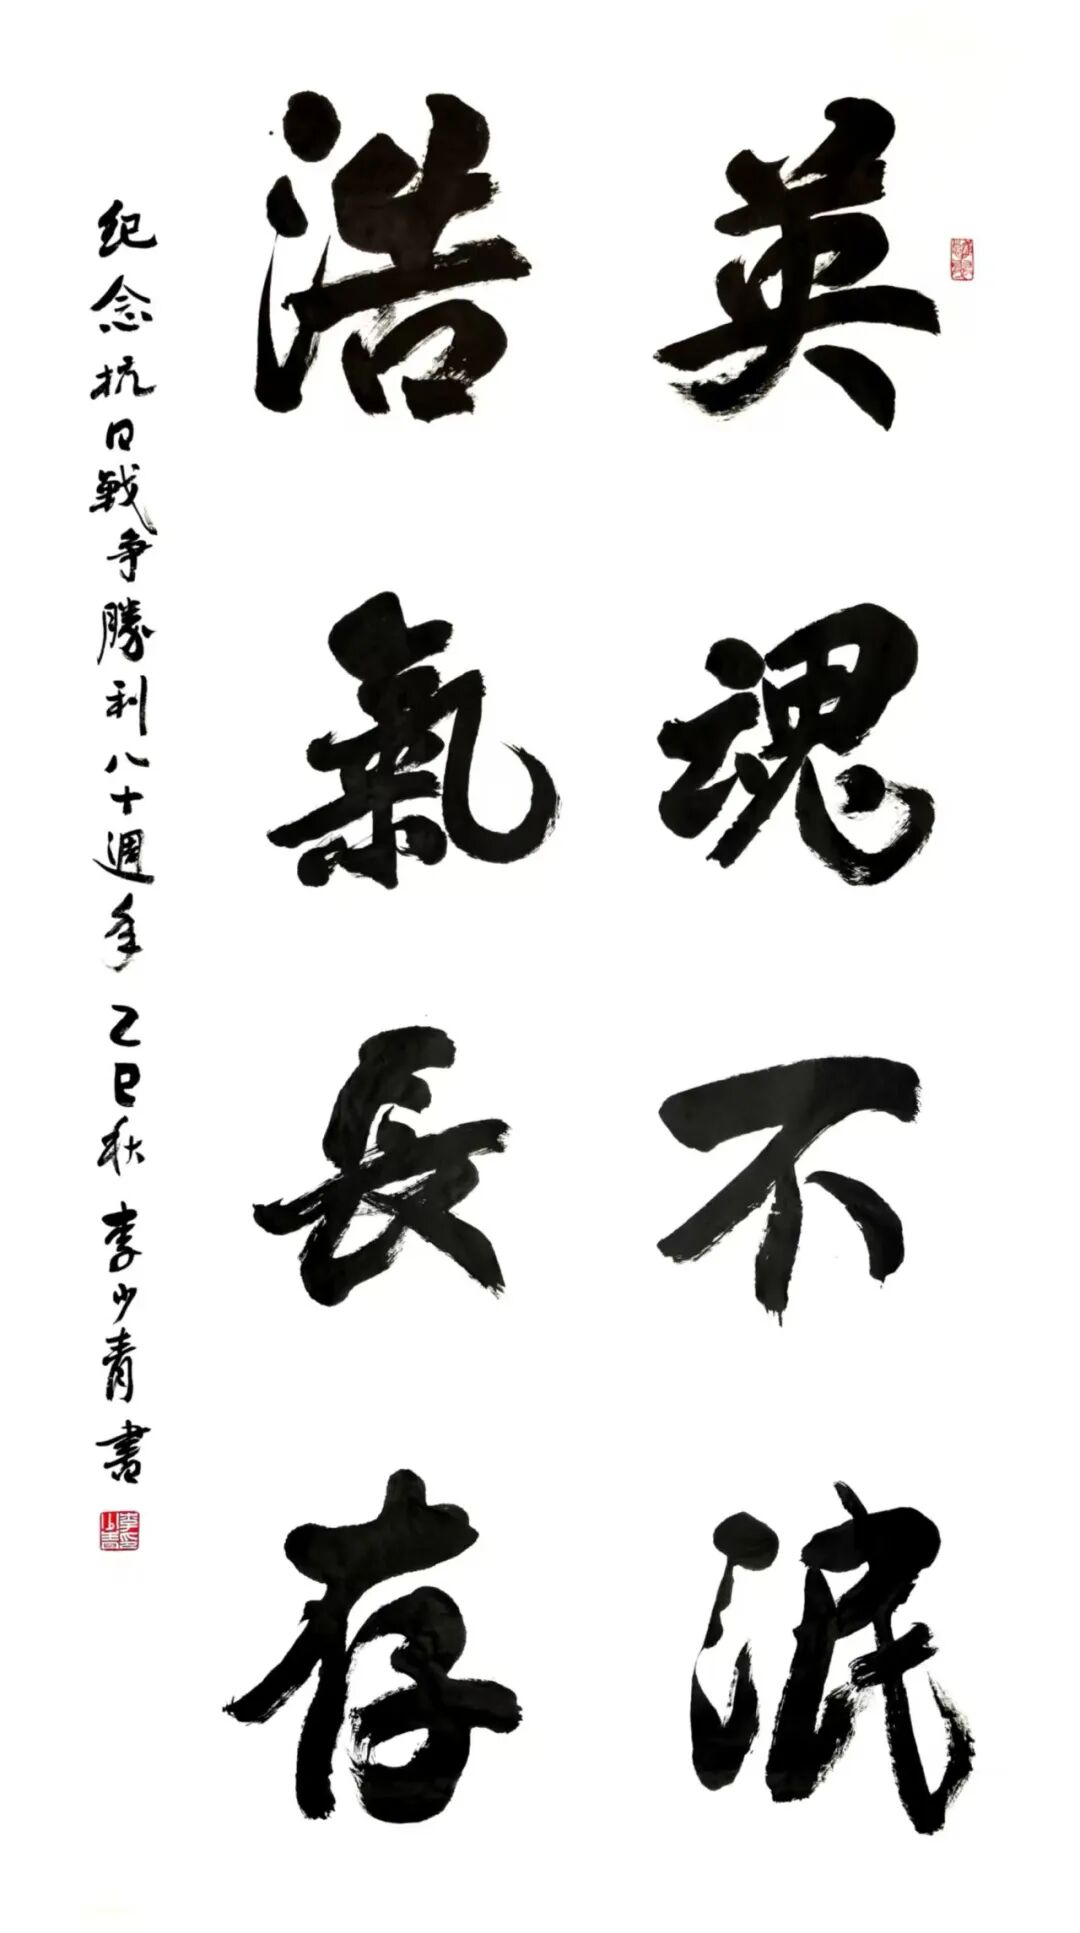 英魂不泯
浩氣長存
纪念抗日戰争勝利八十週年 乙巳秋 李少青書